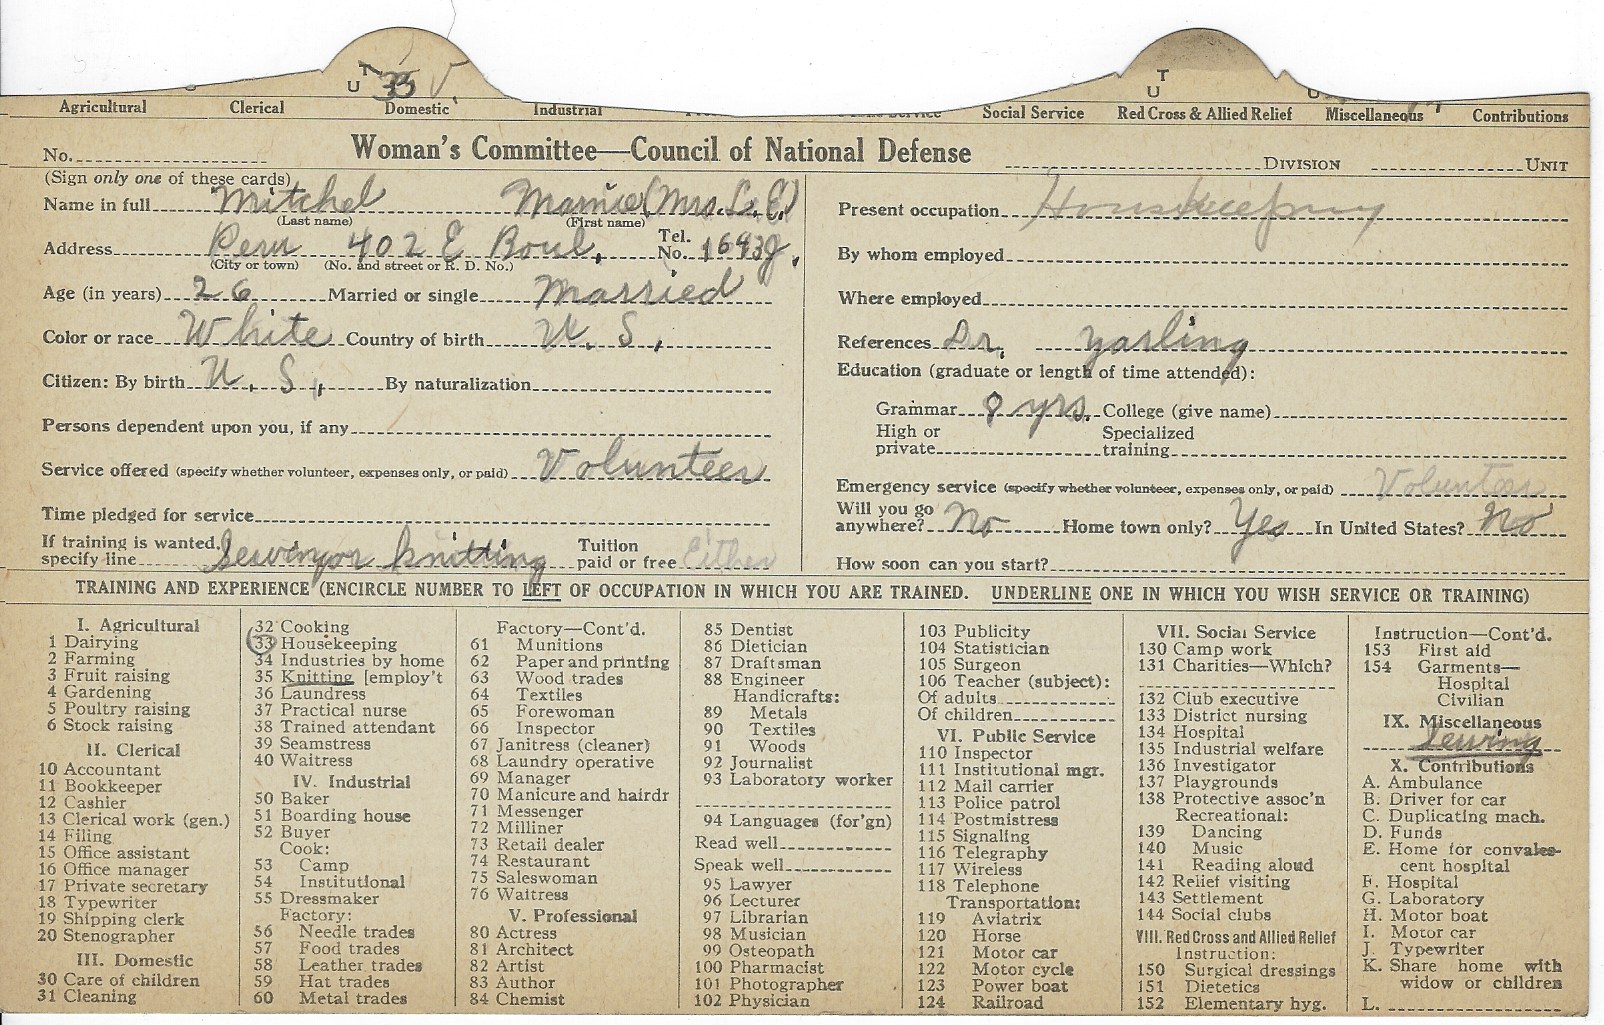 T
U 35 V.
T
U
Agricultural Clerical Domestic Industrial Social Service Red Cross & Allied Relief Miscellaneous Contributions
No. Woman's Committee—Council of National Defense DIVISION UNIT
(Sign only one of these cards)
Name in full Mitchel Mamie (Mrs. L. E.)
(Last name) (First name)
Address Peru 402 E Boul, Tel. No. 1643J.
(City or town) (No. and street or R. D. No.)
Age (in years) 26 Married or single Married
Color or race White Country of birth U. S.,
Citizen: By birth U. S., By naturalization
Persons dependent upon you, if any
Service offered (specify whether volunteer, expenses only, or paid) Volunteer
Time pledged for service
If training is wanted, specify line Sewing or knitting Tuition paid or free Either
Present occupation Houskeepiny
By whom employed
Where employed
References Dr. Yarling
Education (graduate or length of time attended):
Grammar 8 yrs. College (give name)
High or private Specialized training
Emergency service (specify whether volunteer, expenses only, or paid) Volunteer
Will you go anywhere? No Home town only? Yes In United States? No
How soon can you start?
TRAINING AND EXPERIENCE (ENCIRCLE NUMBER TO LEFT OF OCCUPATION IN WHICH YOU ARE TRAINED. UNDERLINE ONE IN WHICH YOU WISH SERVICE OR TRAINING)
I. Agricultural
1 Dairying
2 Farming
3 Fruit raising
4 Gardening
5 Poultry raising
6 Stock raising
II. Clerical
10 Accountant
11 Bookkeeper
12 Cashier
13 Clerical work (gen.)
14 Filing
15 Office assistant
16 Office manager
17 Private secretary
18 Typewriter
19 Shipping clerk
20 Stenographer
III. Domestic
30 Care of children
31 Cleaning
32 Cooking
33 Housekeeping
34 Industries by home
35 Knitting [employ't
36 Laundress
37 Practical nurse
38 Trained attendant
39 Seamstress
40 Waitress
IV. Industrial
50 Baker
51 Boarding house
52 Buyer
Cook:
53 Camp
54 Institutional
55 Dressmaker
Factory:
56 Needle trades
57 Food trades
58 Leather trades
59 Hat trades
60 Metal trades
Factory—Cont'd.
61 Munitions
62 Paper and printing
63 Wood trades
64 Textiles
65 Forewoman
66 Inspector
67 Janitress (cleaner)
68 Laundry operative
69 Manager
70 Manicure and hairdr
71 Messenger
72 Milliner
73 Retail dealer
74 Restaurant
75 Saleswoman
76 Waitress
V. Professional
80 Actress
81 Architect
82 Artist
83 Author
84 Chemist
85 Dentist
86 Dietician
87 Draftsman
88 Engineer
Handicrafts:
89 Metals
90 Textiles
91 Woods
92 Journalist
93 Laboratory worker
94 Languages (for'gn)
Read well
Speak well
95 Lawyer
96 Lecturer
97 Librarian
98 Musician
99 Osteopath
100 Pharmacist
101 Photographer
102 Physician
103 Publicity
104 Statistician
105 Surgeon
106 Teacher (subject):
Of adults
Of children
VI. Public Service
110 Inspector
111 Institutional mgr.
112 Mail carrier
113 Police patrol
114 Postmistress
115 Signaling
116 Telegraphy
117 Wireless
118 Telephone
Transportation:
119 Aviatrix
120 Horse
121 Motor car
122 Motor cycle
123 Power boat
124 Railroad
VII. Social Service
130 Camp work
131 Charities—Which?
132 Club executive
133 District nursing
134 Hospital
135 Industrial welfare
136 Investigator
137 Playgrounds
138 Protective assoc'n
Recreational:
139 Dancing
140 Music
141 Reading aloud
142 Relief visiting
143 Settlement
144 Social clubs
VIII. Red Cross and Allied Relief
Instruction:
150 Surgical dressings
151 Dietetics
152 Elementary hyg.
Instruction—Cont'd.
153 First aid
154 Garments—
Hospital
Civilian
IX. Miscellaneous
Sewing
X. Contributions
A. Ambulance
B. Driver for car
C. Duplicating mach.
D. Funds
E. Home for convales-
cent hospital
F. Hospital
G. Laboratory
H. Motor boat
I. Motor car
J. Typewriter
K. Share home with
widow or children
L.